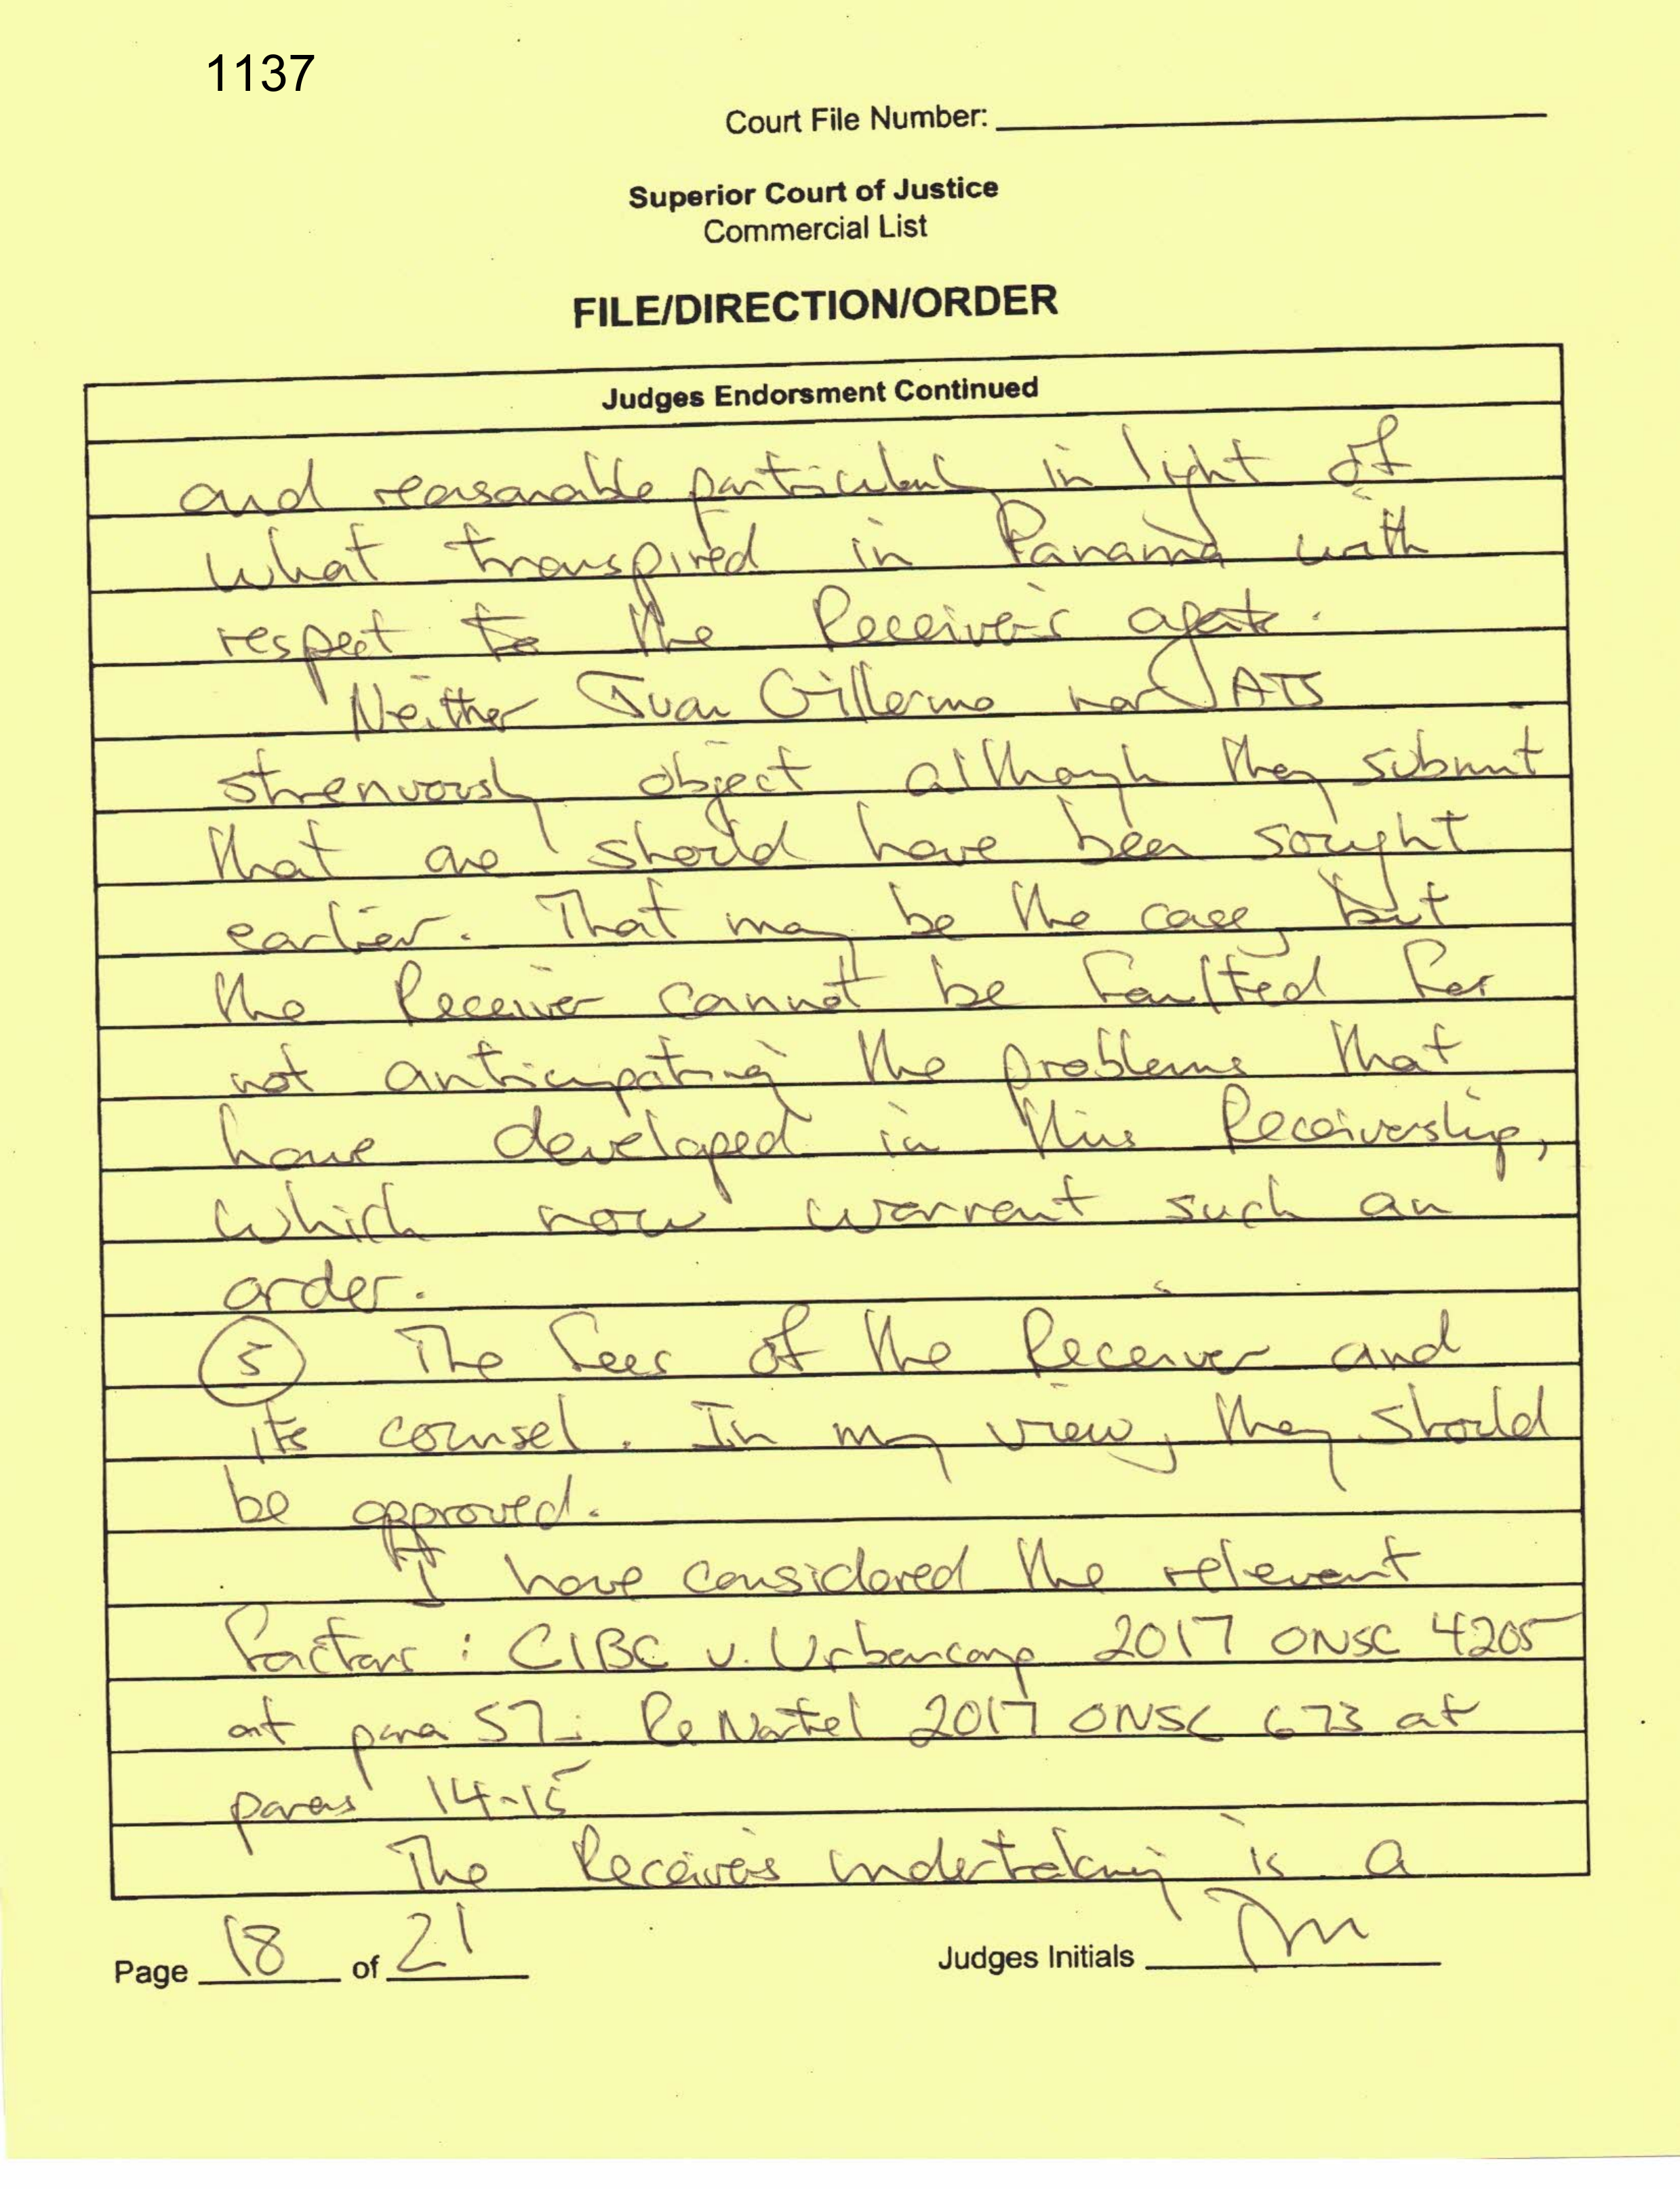 1137
Court File Number:
Superior Court of Justice
Commercial List
FILE/DIRECTION/ORDER
Judges Endorsment Continued
and reasonable particularly in light of
what transpired in Panama with
respect to the Receiver's agents.
Neither Juan Gillermo nor ATS
strenuously object although they submit
that one should have been sought
earlier. That may be the case, but
the Receiver cannot be faulted for
not anticipating the problems that
have developed in this Receivership,
which now warrant such an
order.
5 The fees of the Receiver and
its counsel. In my view, they should
be approved.
I have considered the relevant
factors: CIBC v. Urbancorp 2017 ONSC 4205
at para 57; Re Nortel 2017 ONSC 673 at
paras 14-15
The Receiver's undertaking is a
Page 18 of 21
Judges Initials